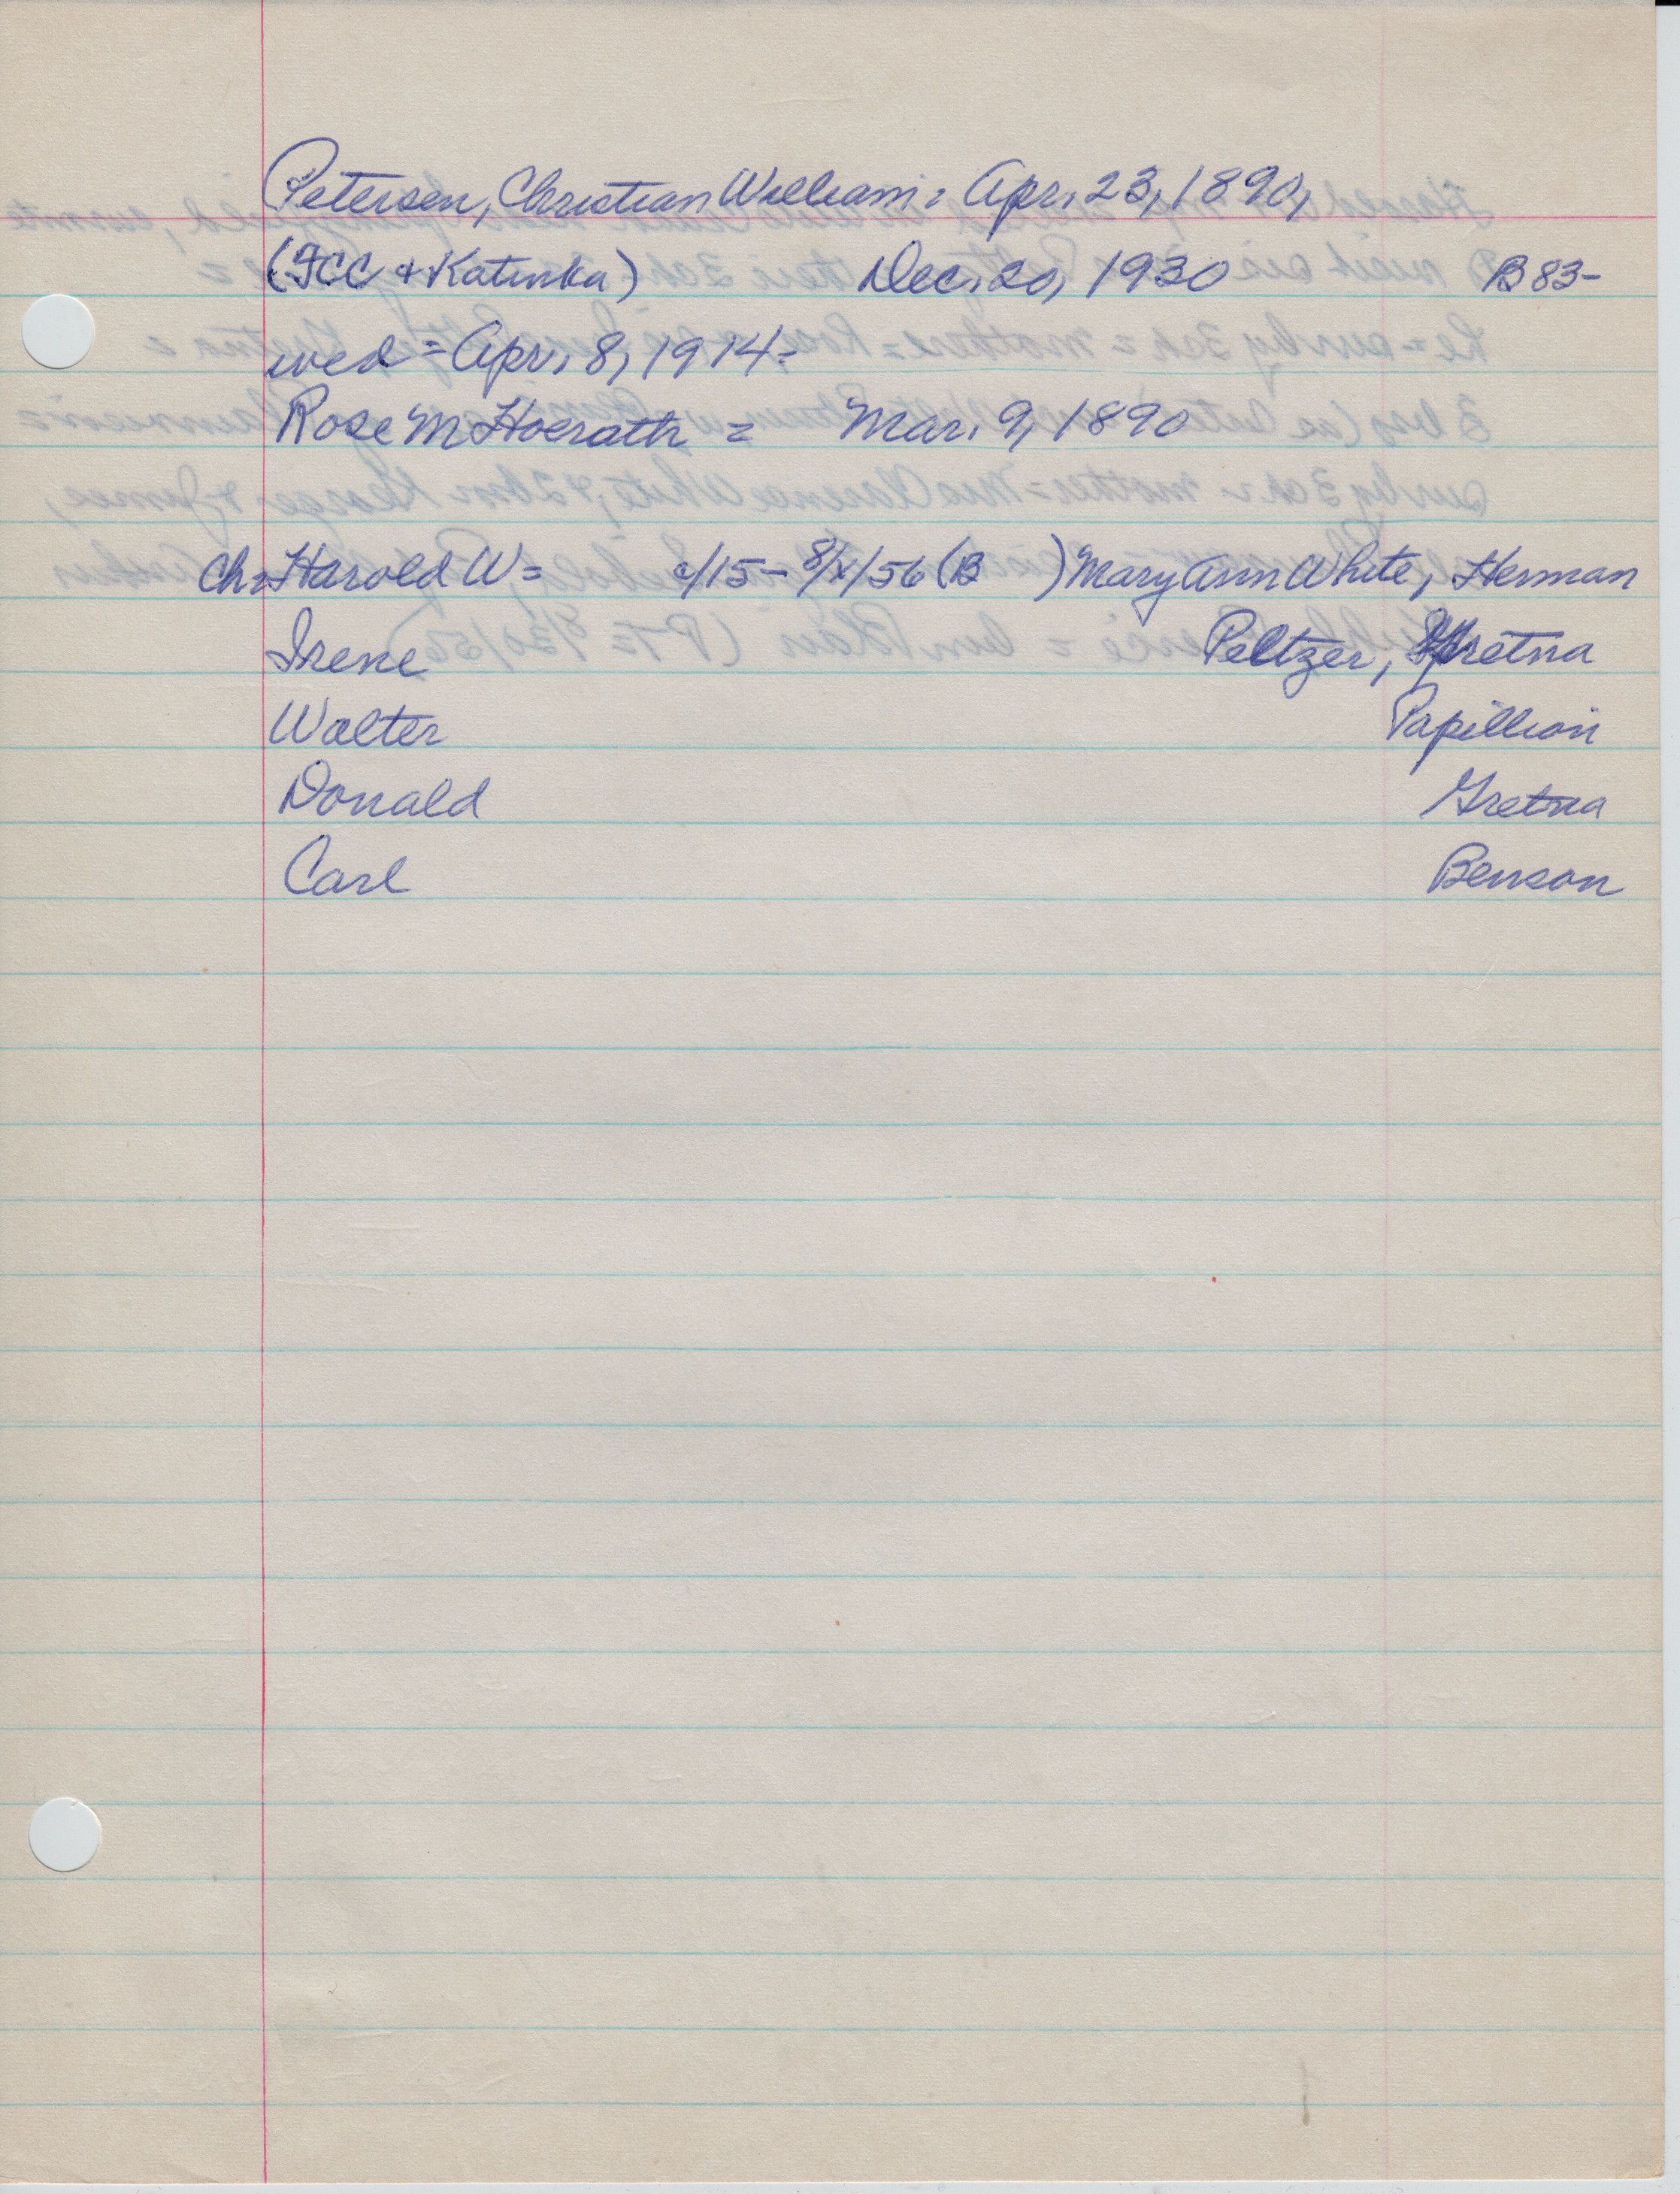 Petersen, Christian William: Apr. 23, 1890,
(FCC & Katinka) Dec. 20, 1930 B 83-
wed = Apr. 8, 1914 =
Rose M Hoerath = Mar. 9, 1890
Ch = Harold W = c/15 - 8/x/56 (B ) Mary Ann White, Herman
Irene Peltzer, Gretna
Walter Papillion
Donald Gretna
Carl Benson